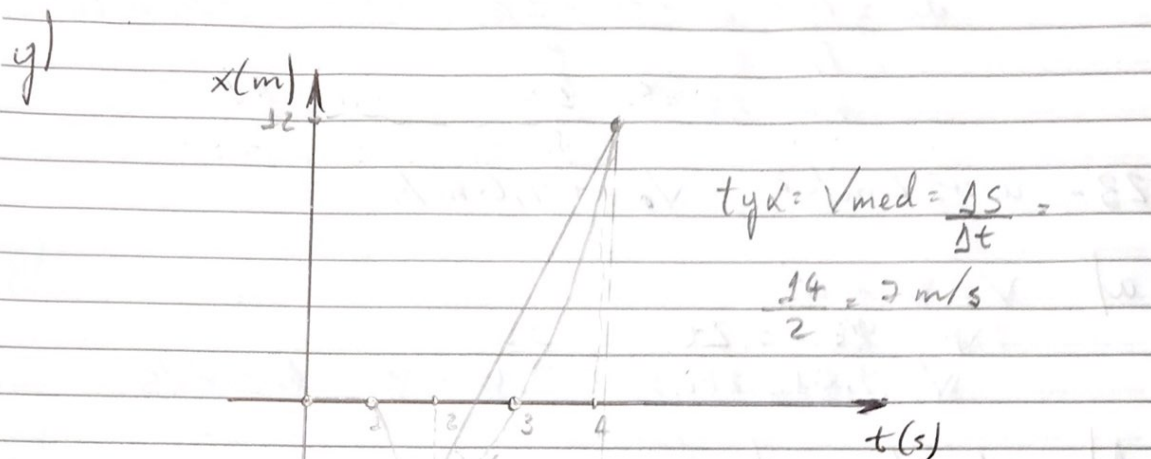 g)
x(m)
12
tgα = Vmed = ΔS/Δt =
14/2 = 7 m/s
1 2 3 4
t(s)